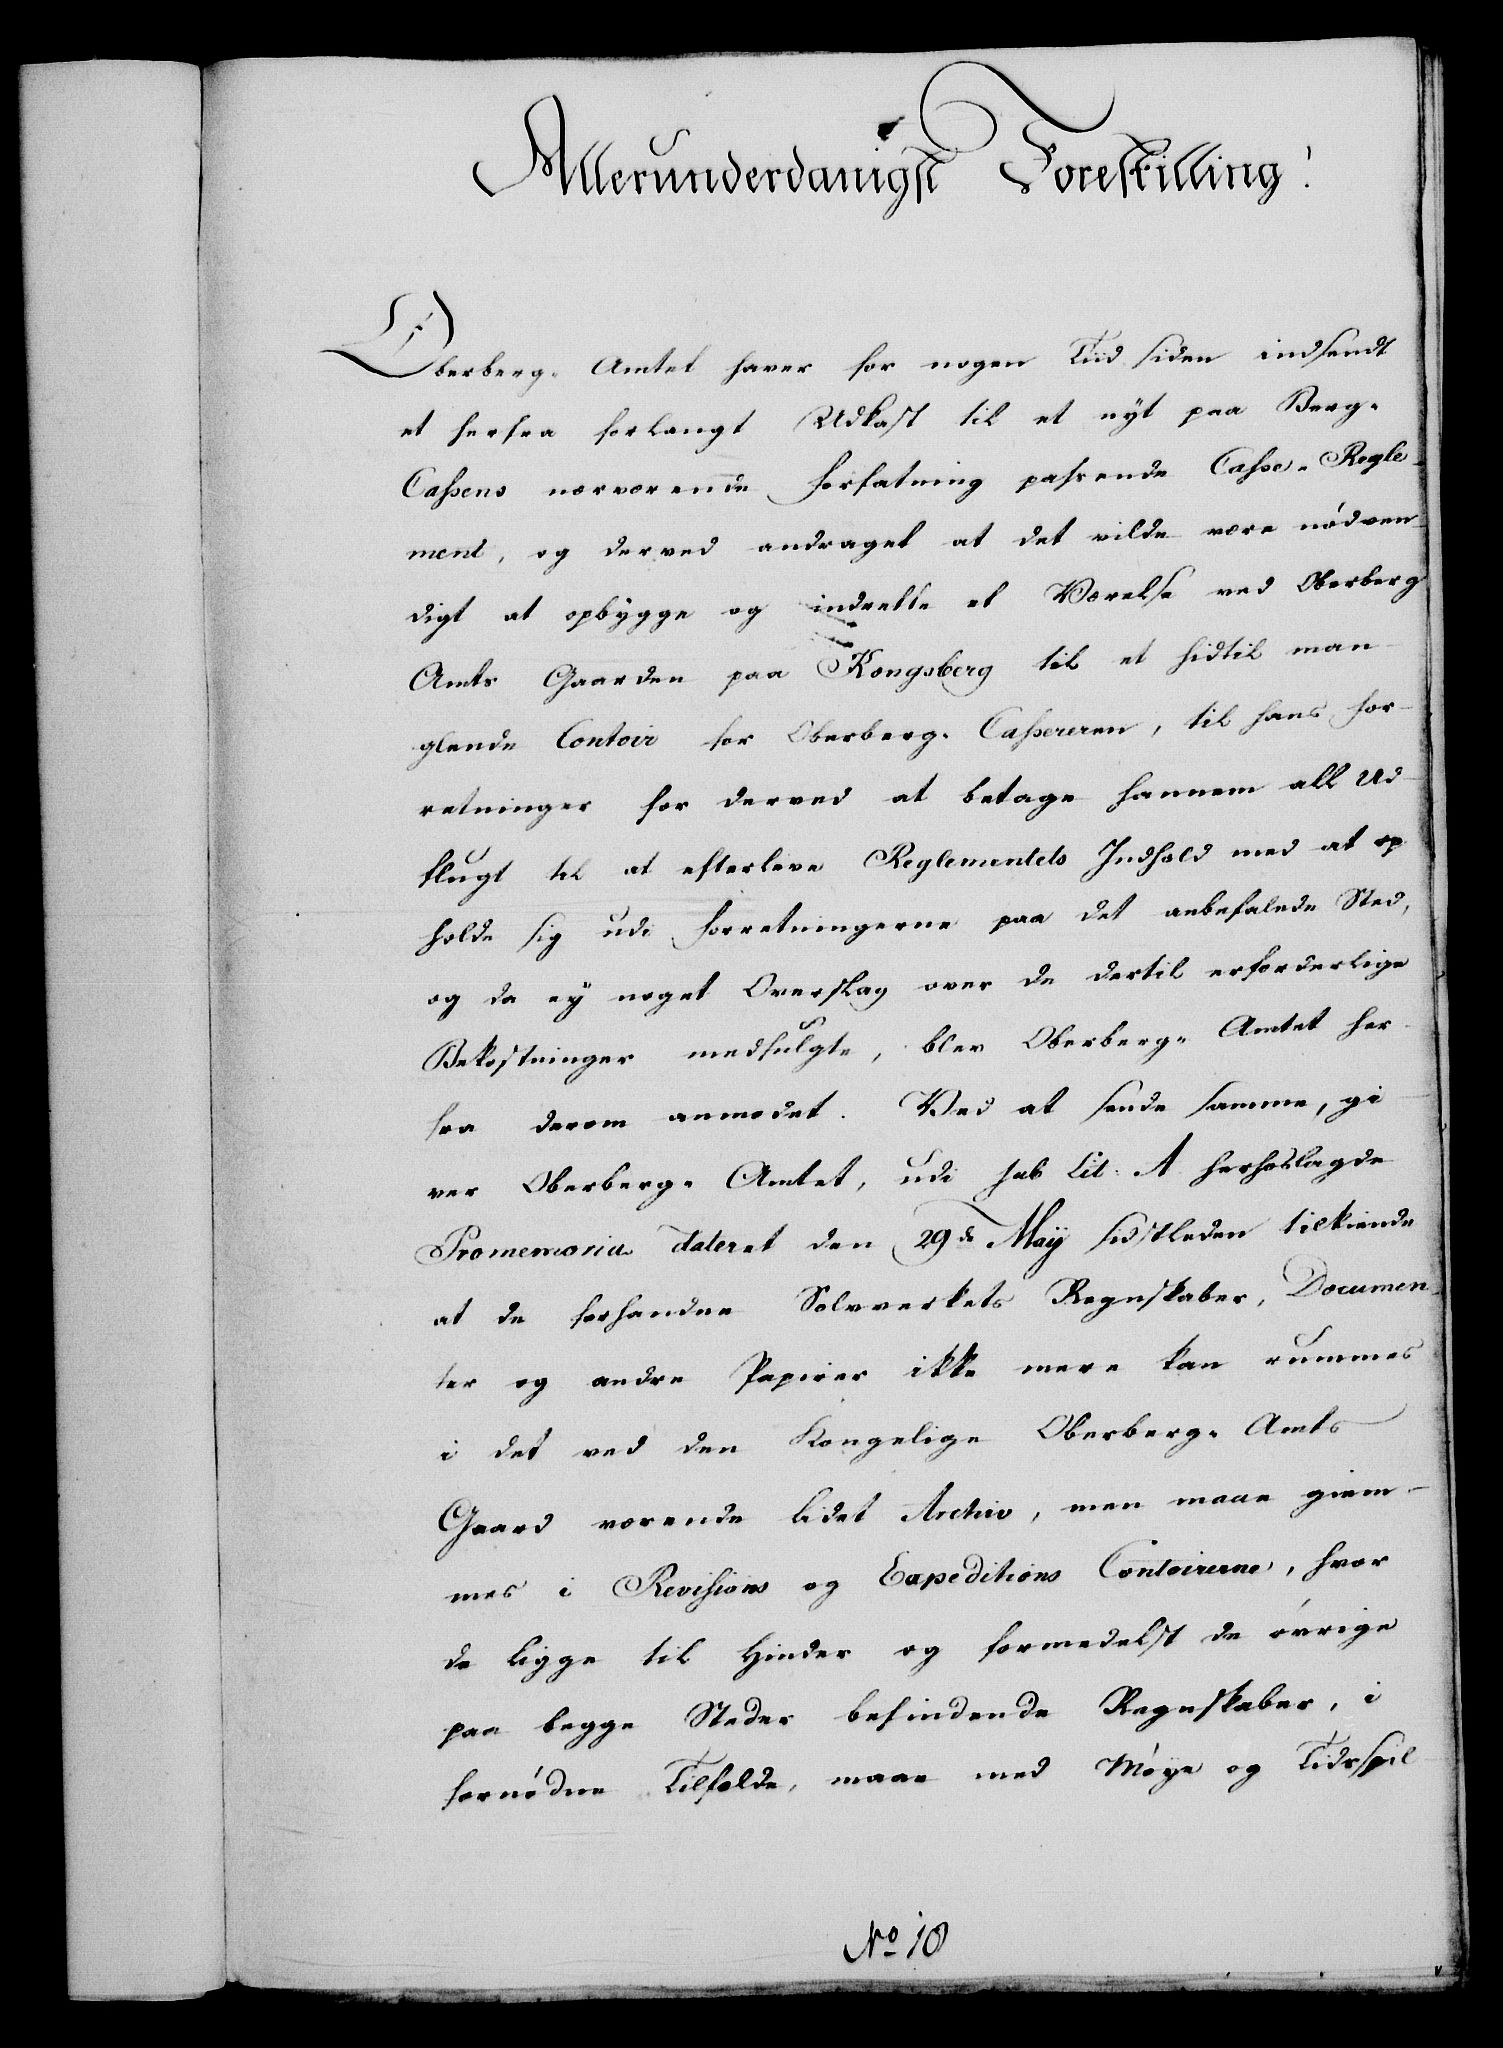 Allerunderdanigst Forestilling!
Oberberg-Amtet haver for nogen Tiid siden indsendt
et herfra forlangt Udkast til et nÿt paa Berg-
Cassens nærværende Forfatning passende Casse-Regle-
ment, og derved andraget at det vilde være nødven-
digt at opbÿgge og indrette et Værelse ved Oberberg
Amts Gaarden paa Kongsberg til et hidtil man-
glende Contoir for Oberberg-Cassereren, til hans For-
retninger for derved at betage hannem all Ud-
flugt til at efterleve Reglementets Indhold med at op-
holde sig udi Forretningerne paa det anbefalede Sted,
og da eÿ noget Overslag over de dertil erforderlige
Bekostninger medfulgte, blev Oberberg-Amtet her-
fra derom anmodet. Ved at sende samme, gi-
ver Oberberg-Amtet, udi sub Lit: A herhoslagde
Promemoria dateret den 29de Maÿ sidstleden tilkiende
at de forhandne Sølvverkets Regnskaber, Documen-
ter og andre Papirer ikke mere kan rummes
i det ved den Kongelige Oberberg-Amts
Gaard værende lidet Archiv, men maae giem-
mes i Revisions og Expeditions Contoirerne, hvor
de ligge til Hinder og formedelst de øvrige
paa begge Steder befindende Regnskaber, i
fornødne Tilfælde, maae med Møye og Tidsspil-
No 18